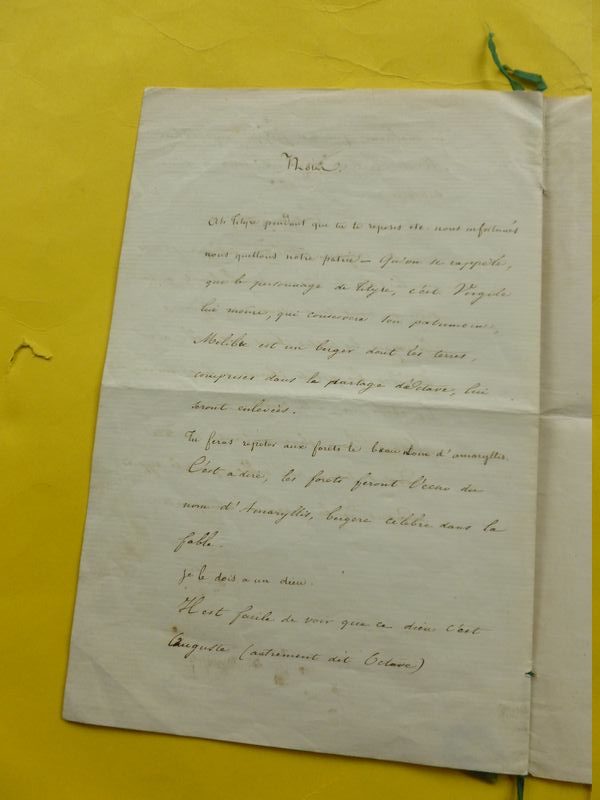 Notes.
Ah Tityre pendant que tu te reposes etc. nous infortunés
nous quittons notre patrie — Qu'on se rappele,
que le personnage de Tityre, c'est Virgile
lui même, qui conservera son patrimoine,
Melibée est un berger dont les terres,
comprises dans le partage d'Octave, lui
seront enlevées.
Tu feras repeter aux forêts le beau nom d'amaryllis.
C'est a dire, les forets feront l'écho du
nom d'Amaryllis, bergere célèbre dans la
fable.
je le dois a un dieu.
Il est facile de voir que ce dieu c'est
Auguste (autrement dit Octave)